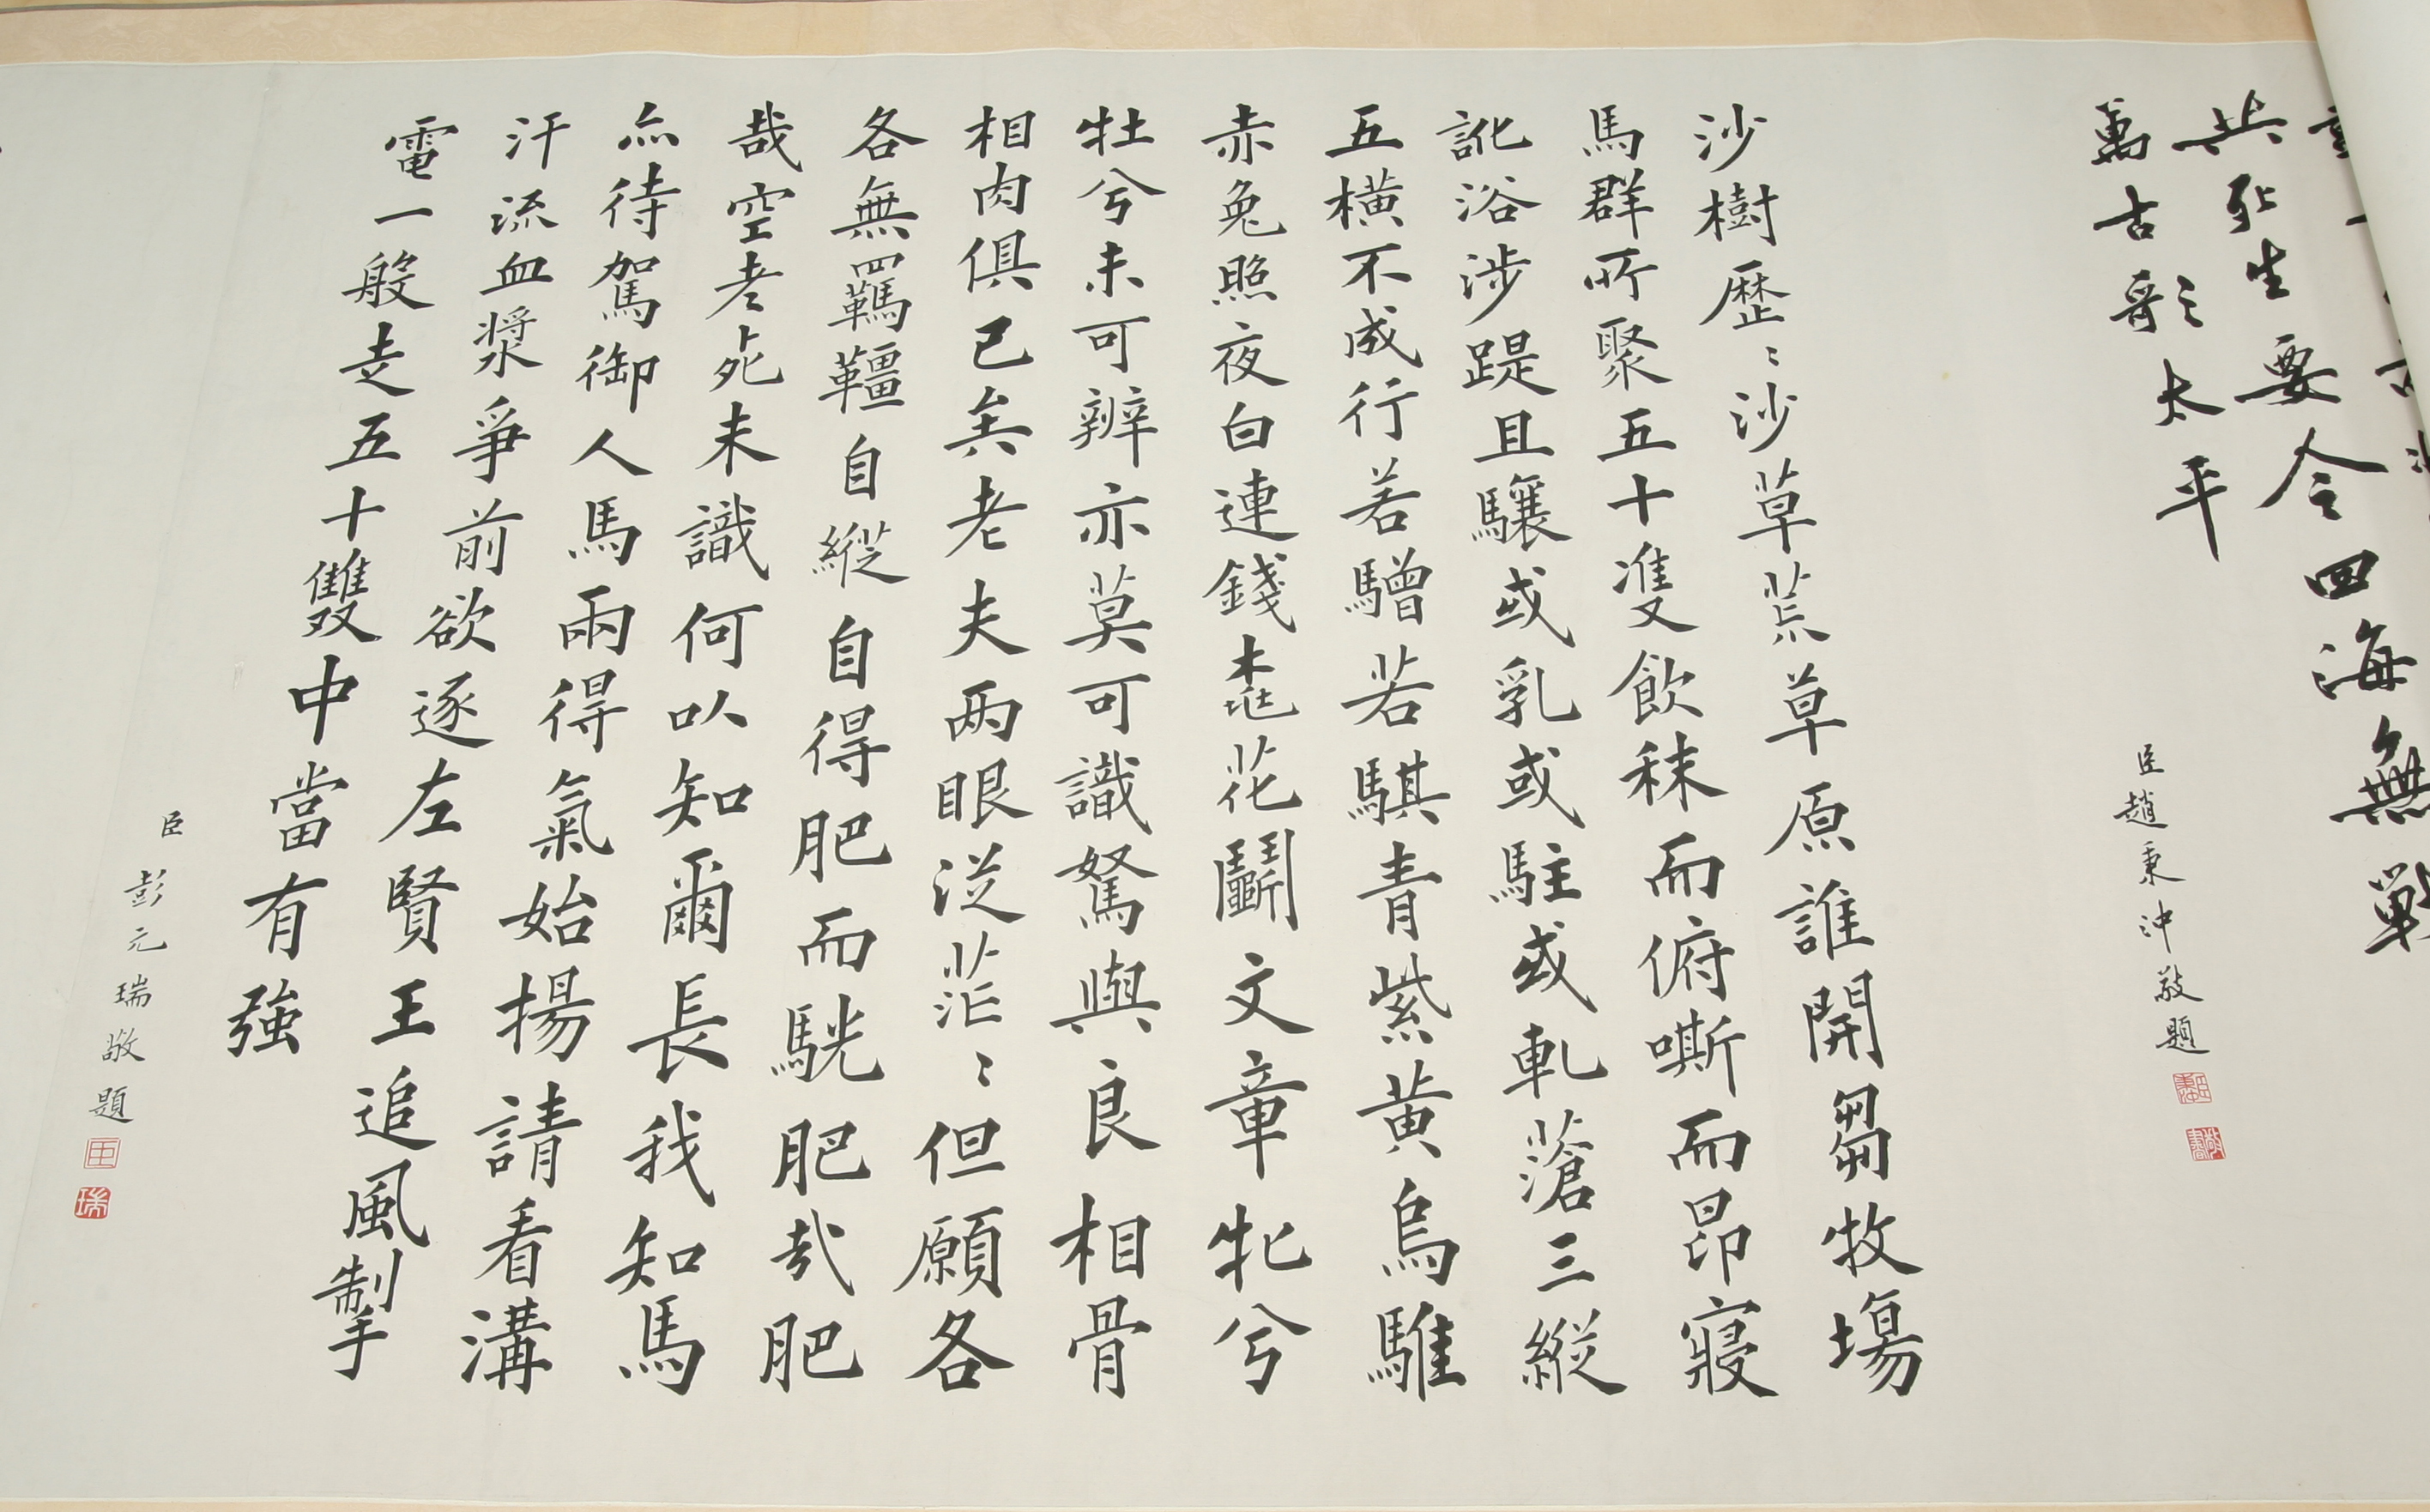 共死生要令四海無戰
萬古歌太平
臣趙秉沖敬題
沙樹歷〻沙草荒草原誰開芻牧場
馬群所聚五十隻飲秣而俯嘶而昂寢
訛浴涉踶且驤或乳或駐或軋蒼三縱
五橫不成行若驓若騏青紫黄烏騅
赤兔照夜白連錢桃花鬭文章牝兮
牡兮未可辨亦莫可識駑與良相骨
相肉俱已矣老夫兩眼從茫〻但願各
各無羈韁自縱自得肥而駫肥哉肥
哉空老死未識何以知爾長我知馬
亦待駕御人馬兩得氣始揚請看溝
汗流血漿爭前欲逐左賢王追風掣
電一般走五十雙中當有強
臣彭元瑞敬題